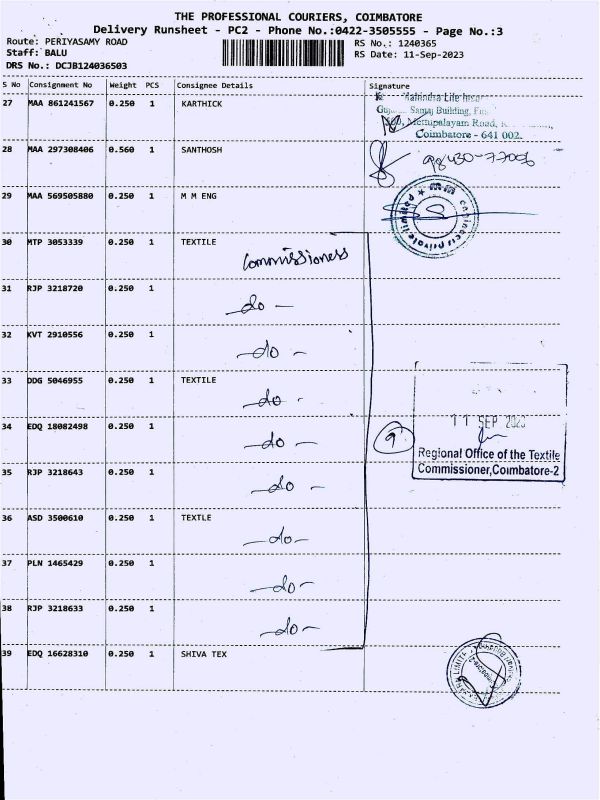 THE PROFESSIONAL COURIERS, COIMBATORE
Delivery Runsheet - PC2 - Phone No.:0422-3505555 - Page No.:3
Route: PERIYASAMY ROAD
RS No.: 1240365
Staff: BALU
RS Date: 11-Sep-2023
DRS No.: DCJB124036503
S No Consignment No Weight PCS Consignee Details Signature
27 MAA 861241567 0.250 1 KARTHICK
Mahindra Life
Samaj Building,
Mettupalayam Road,
Coimbatore - 641 002.
28 MAA 297308406 0.560 1 SANTHOSH
98430-77056
29 MAA 569505880 0.250 1 M M ENG
30 MTP 3053339 0.250 1 TEXTILE
Commissioness
31 RJP 3218720 0.250 1
- do -
32 KVT 2910556 0.250 1
- do -
33 DDG 5046955 0.250 1 TEXTILE
- do -
34 EDQ 18082498 0.250 1
- do -
9
11 SEP 2023
Regional Office of the Textile
Commissioner,Coimbatore-2
35 RJP 3218643 0.250 1
- do -
36 ASD 3500610 0.250 1 TEXTLE
- do -
37 PLN 1465429 0.250 1
- do -
38 RJP 3218633 0.250 1
- do -
39 EDQ 16628310 0.250 1 SHIVA TEX